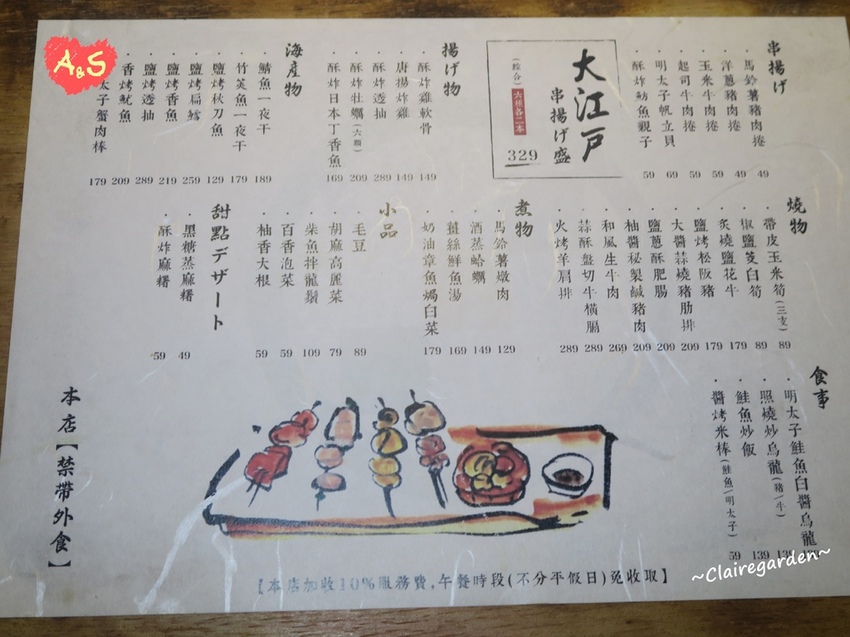 串揚げ
馬鈴薯豬肉捲 49
洋蔥豬肉捲 49
玉米牛肉捲 59
起司牛肉捲 59
明太子帆立貝 69
酥炸魴魚親子 59
大江戸
串揚げ盛
(綜合)六種各二本
329
揚げ物
酥炸雞軟骨 149
唐揚炸雞 149
酥炸透抽 289
酥炸牡蠣(六顆) 209
酥炸日本丁香魚 169
海産物
鯖魚一夜干 189
竹筴魚一夜干 179
鹽烤秋刀魚 129
鹽烤扁鱈 259
鹽烤香魚 219
鹽烤透抽 289
香烤魷魚 209
太子蟹肉棒 179
燒物
帶皮玉米筍(三支) 89
椒鹽茭白筍 89
炙燒鹽花牛 179
鹽烤松阪豬 179
大醬蒜燒豬肋排 209
鹽蔥酥肥腸 209
柚醬秘製鹹豬肉 209
和風生牛肉 269
蒜酥盤切牛橫膈 289
火烤羊肩排 289
煮物
馬鈴薯燉肉 129
酒蒸蛤蠣 149
薑絲鮮魚湯 169
奶油章魚焗白菜 179
小品
毛豆 89
胡麻高麗菜 79
柴魚拌龍鬚 109
百香泡菜 59
柚香大根 59
甜點デザート
黑糖蒸麻糬 49
酥炸麻糬 59
食事
明太子鮭魚白醬烏龍
照燒炒烏龍(豬/牛) 139
鮭魚炒飯 139
醬烤米棒(鮭魚/明太子) 59
本店【禁帶外食】
【本店加收10%服務費,午餐時段(不分平假日)免收取】
A&S
~Clairegarden~